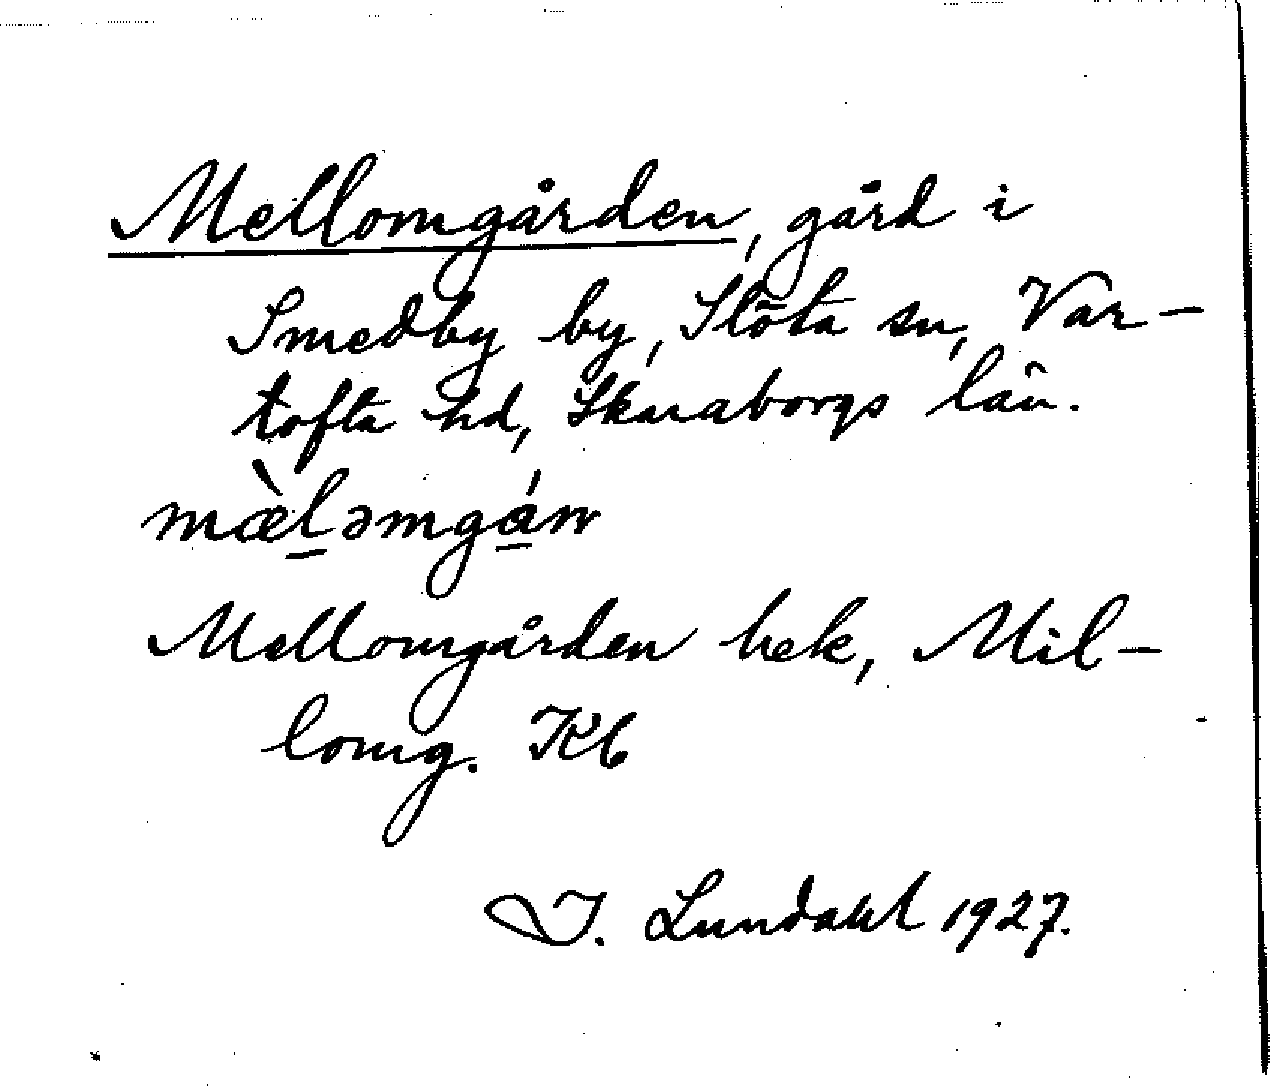 Mellomgården, gård i
Smedby by, Slöta sn, Var-
tofta hd, Skaraborgs län.
mæ̀l̠əmgá̠ɳ
Mellomgården bek, Mil-
lomg. Kb
I. Lundahl 1927.